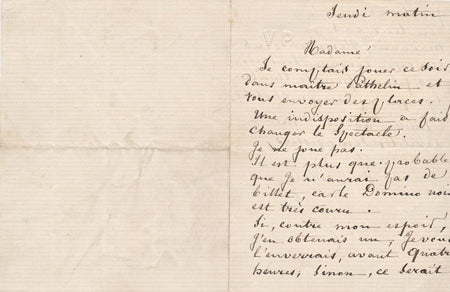 Jeudi matin
VP
Madame
Je comptais jouer ce soir
dans maitre Pathelin et
vous envoyer des places.
Une indisposition a fait
changer le Spectacle.
Je ne joue pas.
Il est plus que probable
que je n'aurai pas de
billet, car le Domino noir
est très couru.
Si, contre mon espoir,
j'en obtenais un, Je vous
l'enverrais, avant quatre
heures; Sinon, ce serait